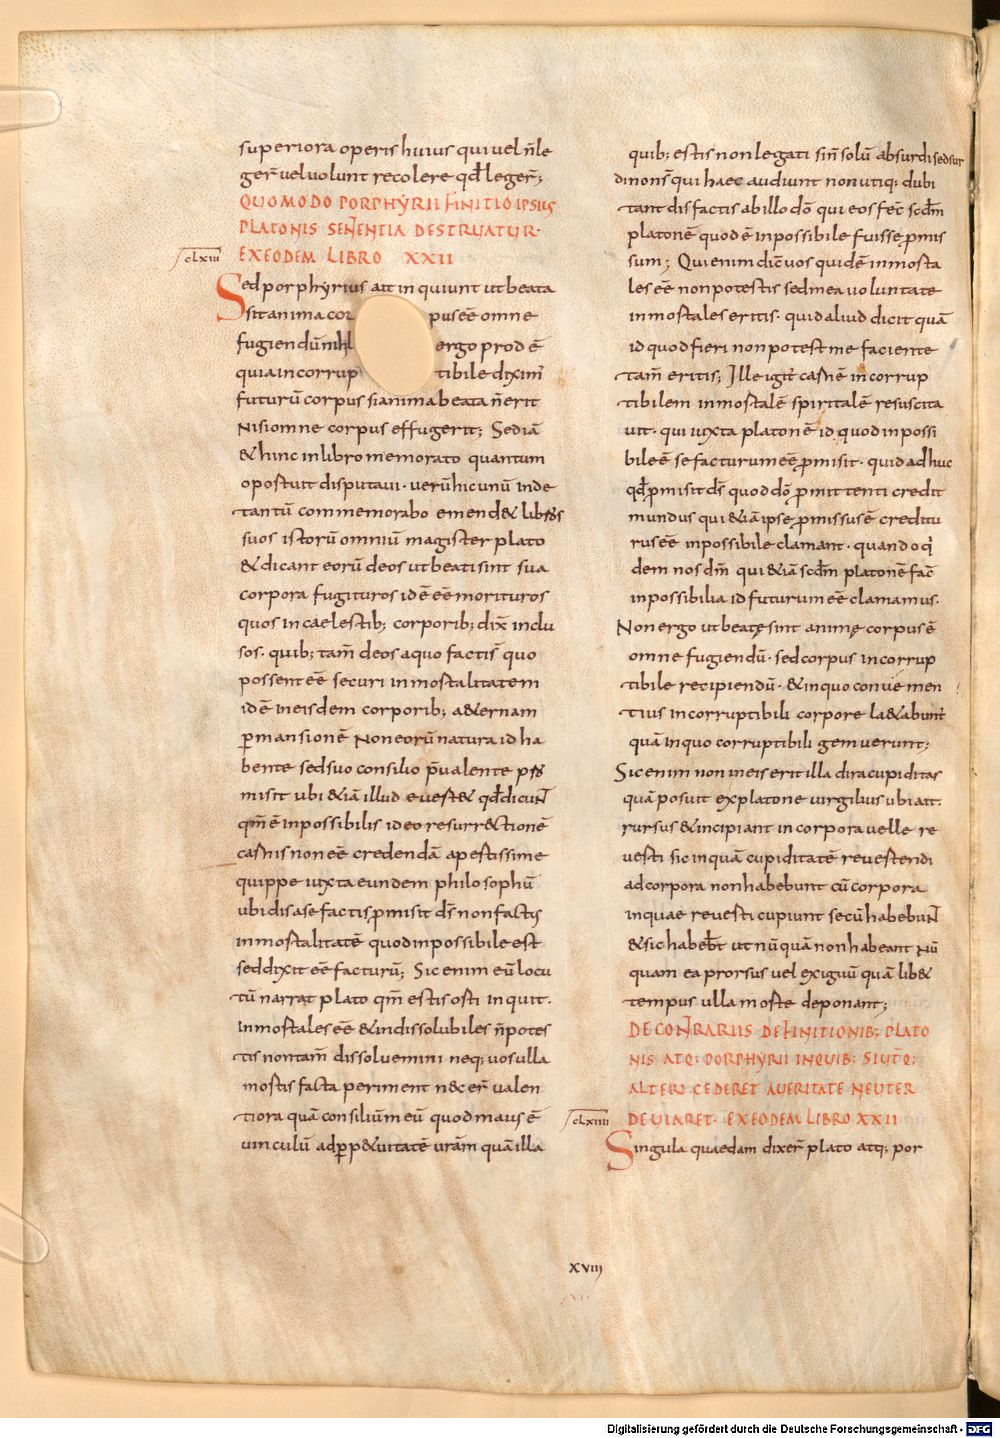 superiora operis huius qui uel n̄ le
ger̄ uel uolunt recolere qđ leger̄;
QUOMODO PORPHYRII FINITIO IPSIUS
PLATONIS SENTENTIA DESTRUATUR·
EX EODEM LIBRO XXII
clxiii
Sed porphyrius ait inquiunt ut beata
sit anima corpus eē omne
fugiendū nihil ergo prod ē
quia incorruptibile dixim̄
futurū corpus si anima beata n̄ erit
Nisi omne corpus effugerit; Sed iā
& hinc in libro memorato quantum
oportuit disputaui· uerū hic unū inde
tantū commemorabo emend& libros
suos istorū omniū magister plato
& dicant eorū deos ut beati sint sua
corpora fugituros id ē eē morituros
quos in caelestib; corporib; dix̄ inclu
sos· quib; tam̄ deos a quo facti s̄ quo
possent eē securi inmortalitatem
id ē in eisdem corporib; a&ernam
ꝑmansionē Non eorū natura id ha
bente sed suo consilio p̄ualente pro
misit ubi &iā illud euert& qđ dicunt
qm̄ ē inpossibilis ideo resurr&tionē
carnis non eē credendā apertissime
quippe iuxta eundem philosophū
ubi dis a se factis ꝓmisit ds̄ non factus
inmortalitatē quod inpossibile est
se dixit eē facturū; Sic enim eū locu
tū narrat plato qm̄ estis orti inquit·
inmortales eē & indissolubiles n̄ potes
tis non tam̄ dissoluemini neq; uos ulla
mortis facta periment nec er̄ ualen
tiora quā consiliū meū quod maius ē
uinculū ad ꝑp&uitatē ur̄am quā illa
quib; estis nonlegati si n̄ solū absurdi sed sur
di non s̄ qui haec audiunt non utiq; dubi
tant dis factis ab illo dō qui eos fec̄ scdm̄
platonē quod ē inpossibile fuisse ꝓmis
sum; Qui enim dic̄ uos quidē inmorta
les eē non potestis sed mea uoluntate
inmortales eritis· quid aliud dicit quā
id quod fieri non potest me faciente
tam̄ eritis; Ille igit̄ carnē incorrup
tibilem inmortalē spiritalē resuscita
uit· qui iuxta platonē id quod inpossi
bile ē se facturum eē ꝓmisit· quid adhuc
qđ ꝓmisit ds̄ quod dō ꝓmittenti credit
mundus qui &iā ipse ꝓmissus ē creditu
rus eē inpossibile clamant· quando q̇
dem nos dm̄ qui &iā scdm̄ platonē fac̄
inpossibilia id futurum eē clamamus·
Non ergo ut beatę sint animę corpus ē
omne fugiendū· sed corpus incorrup
tibile recipiendū· & in quo conuenien
tius incorruptibili corpore la&abunt
quā in quo corruptibili gemuerunt;
Sic enim non in eis erit illa dira cupiditas
quā posuit ex platone uirgilius ubi ait·
rursus & incipiant in corpora uelle re
uerti sic inquā cupiditatē reuertendi
ad corpora non habebunt cū corpora
in quae reuerti cupiunt secū habebunt
& sic habebt̄ ut nūquā non habeant nū
quam ea prorsus uel exiguū quā lib&
tempus ulla morte deponant;
DE CONTRARIIS DEFINITIONIB; PLATO
NIS ATQ; PORPHYRII IN QUIB; SI UT̄Q;
ALTERI CEDERET A UERITATE NEUTER
DEUIARET· EX EODEM LIBRO XXII
clxiiii
Singula quaedam dixer̄ plato atq; por
xviij
Digitalisierung gefördert durch die Deutsche Forschungsgemeinschaft - DFG